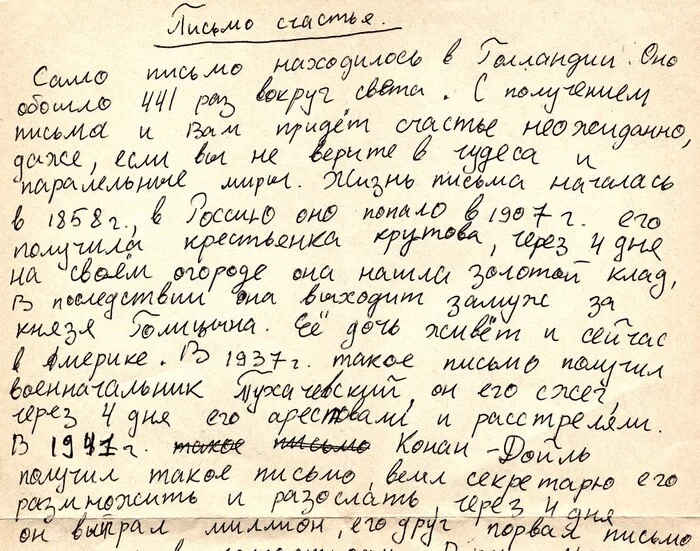 Письмо счастья.
Само письмо находилось в Голландии. Оно
обошло 441 раз вокруг света. С получением
письма и Вам придёт счастье неожиданно,
даже, если вы не верите в чудеса и
паралельные миры. Жизнь письма началась
в 1858г., в Россию оно попало в 1907г. его
получила крестьенка крутова, через 4 дня
на своём огороде она нашла золотой клад,
В последствии она выходит замуж за
князя Голицына. Её дочь живёт и сейчас
в Америке. В 1937г. такое письмо получил
военначальник Тухачевский, он его сжег,
через 4 дня его арествали и расстреляли.
В 1941г. такое письмо Конан-Дойль
получил такое письмо, велил секретарю его
размножить и разослать, через 4 дня
он выграл миллион, его друг порвал письмо